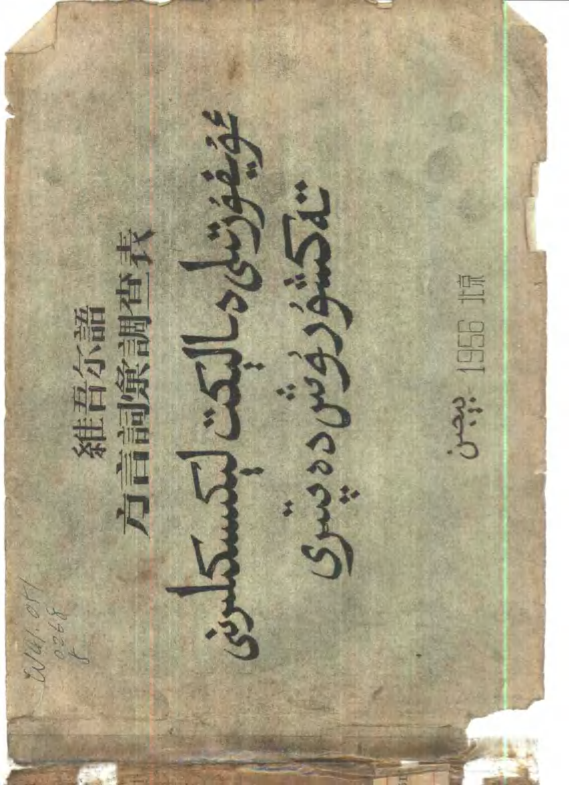 維吾尔語
方言詞彙調查表
ئۇيغۇر تىلى دىيالىكت لىكسىكىلىرىنى
تەكشۈرۈش دەپتىرى
بىيجىن 1956 北京